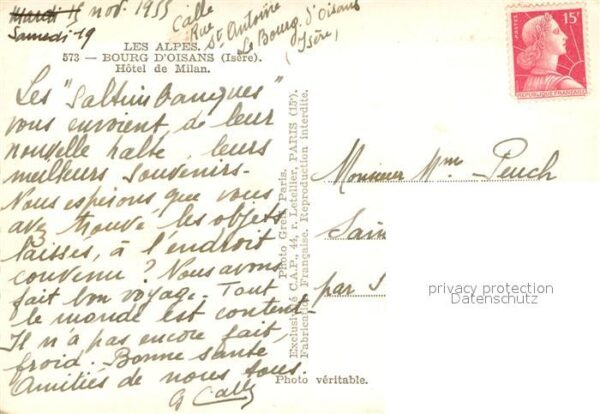 ~~Mardi 15~~ nov. 1955
Samedi 19
Calle
Rue St Antoine
Le Bourg d'Oisans
(Isère)
LES ALPES.
573 — BOURG D'OISANS (Isère).
Hôtel de Milan.
Les "Saltimbanques"
vous envoient, de leur
nouvelle halte, leurs
meilleurs souvenirs-
Nous espérons que vous
avez trouvé les objets
laissés, à l'endroit
convenu? Nous avons
fait bon voyage. Tout
le monde est content-
Il n'a pas encore fait
froid. Bonne santé
Amitiés de nous tous.
Calle
Photo Greff Paris.
Exclusivité C.A.P., 44, r. Letellier, PARIS (15e).
Fabrication Française. Reproduction interdite.
Photo véritable.
15F
REPUBLIQUE FRANÇAISE
Monsieur Mme Peuch
Sain
par S
privacy protection
Datenschutz